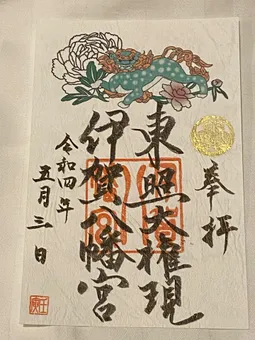 奉拝
東照大権現
伊賀八幡宮
令和四年
五月三日